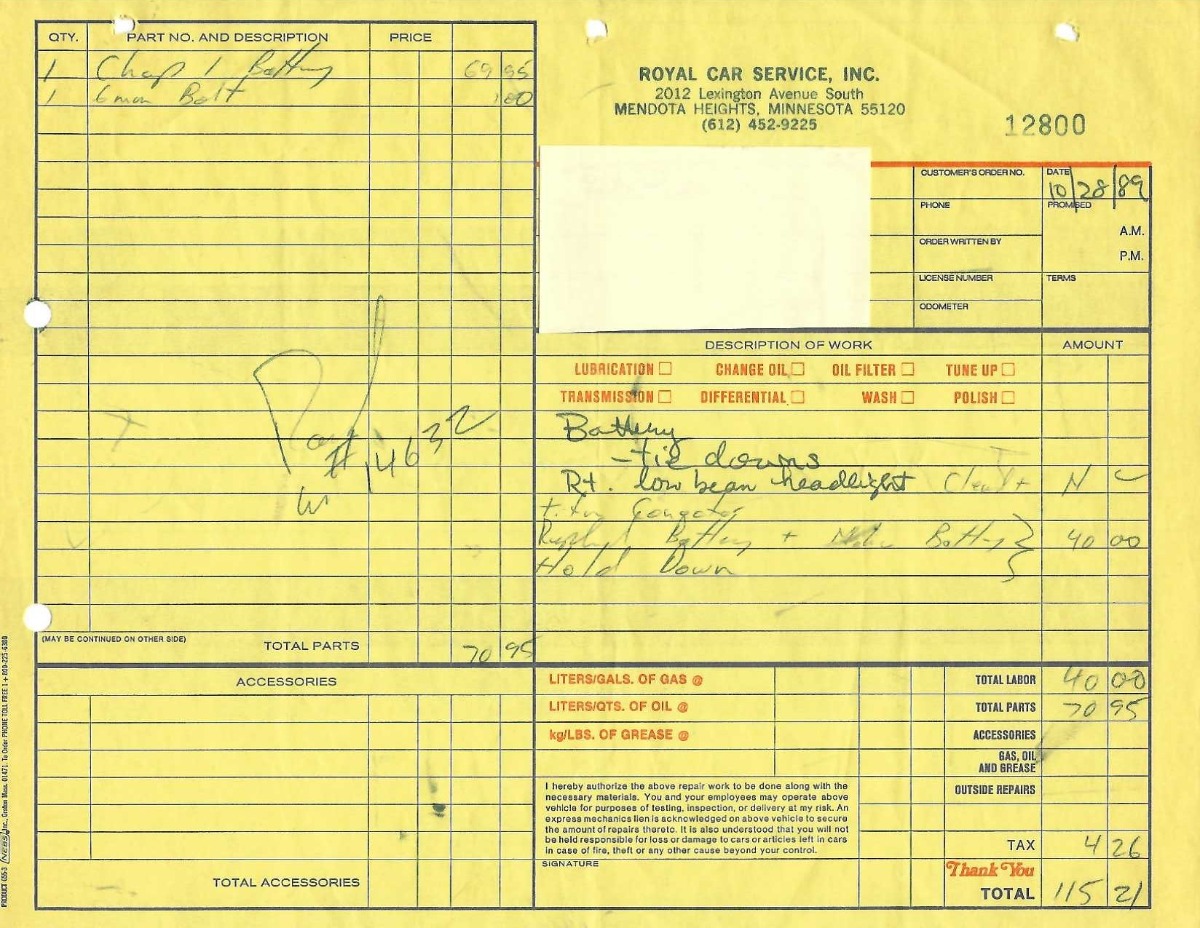 QTY. PART NO. AND DESCRIPTION PRICE
1 Battery 69 95
1 6 mm Bolt 1 00
Paid
# 14632
(MAY BE CONTINUED ON OTHER SIDE) TOTAL PARTS 70 95
ACCESSORIES
TOTAL ACCESSORIES
ROYAL CAR SERVICE, INC.
2012 Lexington Avenue South
MENDOTA HEIGHTS, MINNESOTA 55120
(612) 452-9225
12800
CUSTOMER'S ORDER NO. DATE 10/28/89
PHONE PROMISED
A.M.
ORDER WRITTEN BY
P.M.
LICENSE NUMBER TERMS
ODOMETER
DESCRIPTION OF WORK AMOUNT
LUBRICATION CHANGE OIL OIL FILTER TUNE UP
TRANSMISSION DIFFERENTIAL WASH POLISH
Battery
- tie downs
Rt. low beam headlight N C
Battery + Battery 40 00
Hold Down
LITERS/GALS. OF GAS @ TOTAL LABOR 40 00
LITERS/QTS. OF OIL @ TOTAL PARTS 70 95
kg/LBS. OF GREASE @ ACCESSORIES
GAS, OIL
AND GREASE
OUTSIDE REPAIRS
I hereby authorize the above repair work to be done along with the
necessary materials. You and your employees may operate above
vehicle for purposes of testing, inspection, or delivery at my risk. An
express mechanics lien is acknowledged on above vehicle to secure
the amount of repairs thereto. It is also understood that you will not
be held responsible for loss or damage to cars or articles left in cars
in case of fire, theft or any other cause beyond your control.
TAX 4 26
SIGNATURE
Thank You
TOTAL 115 21